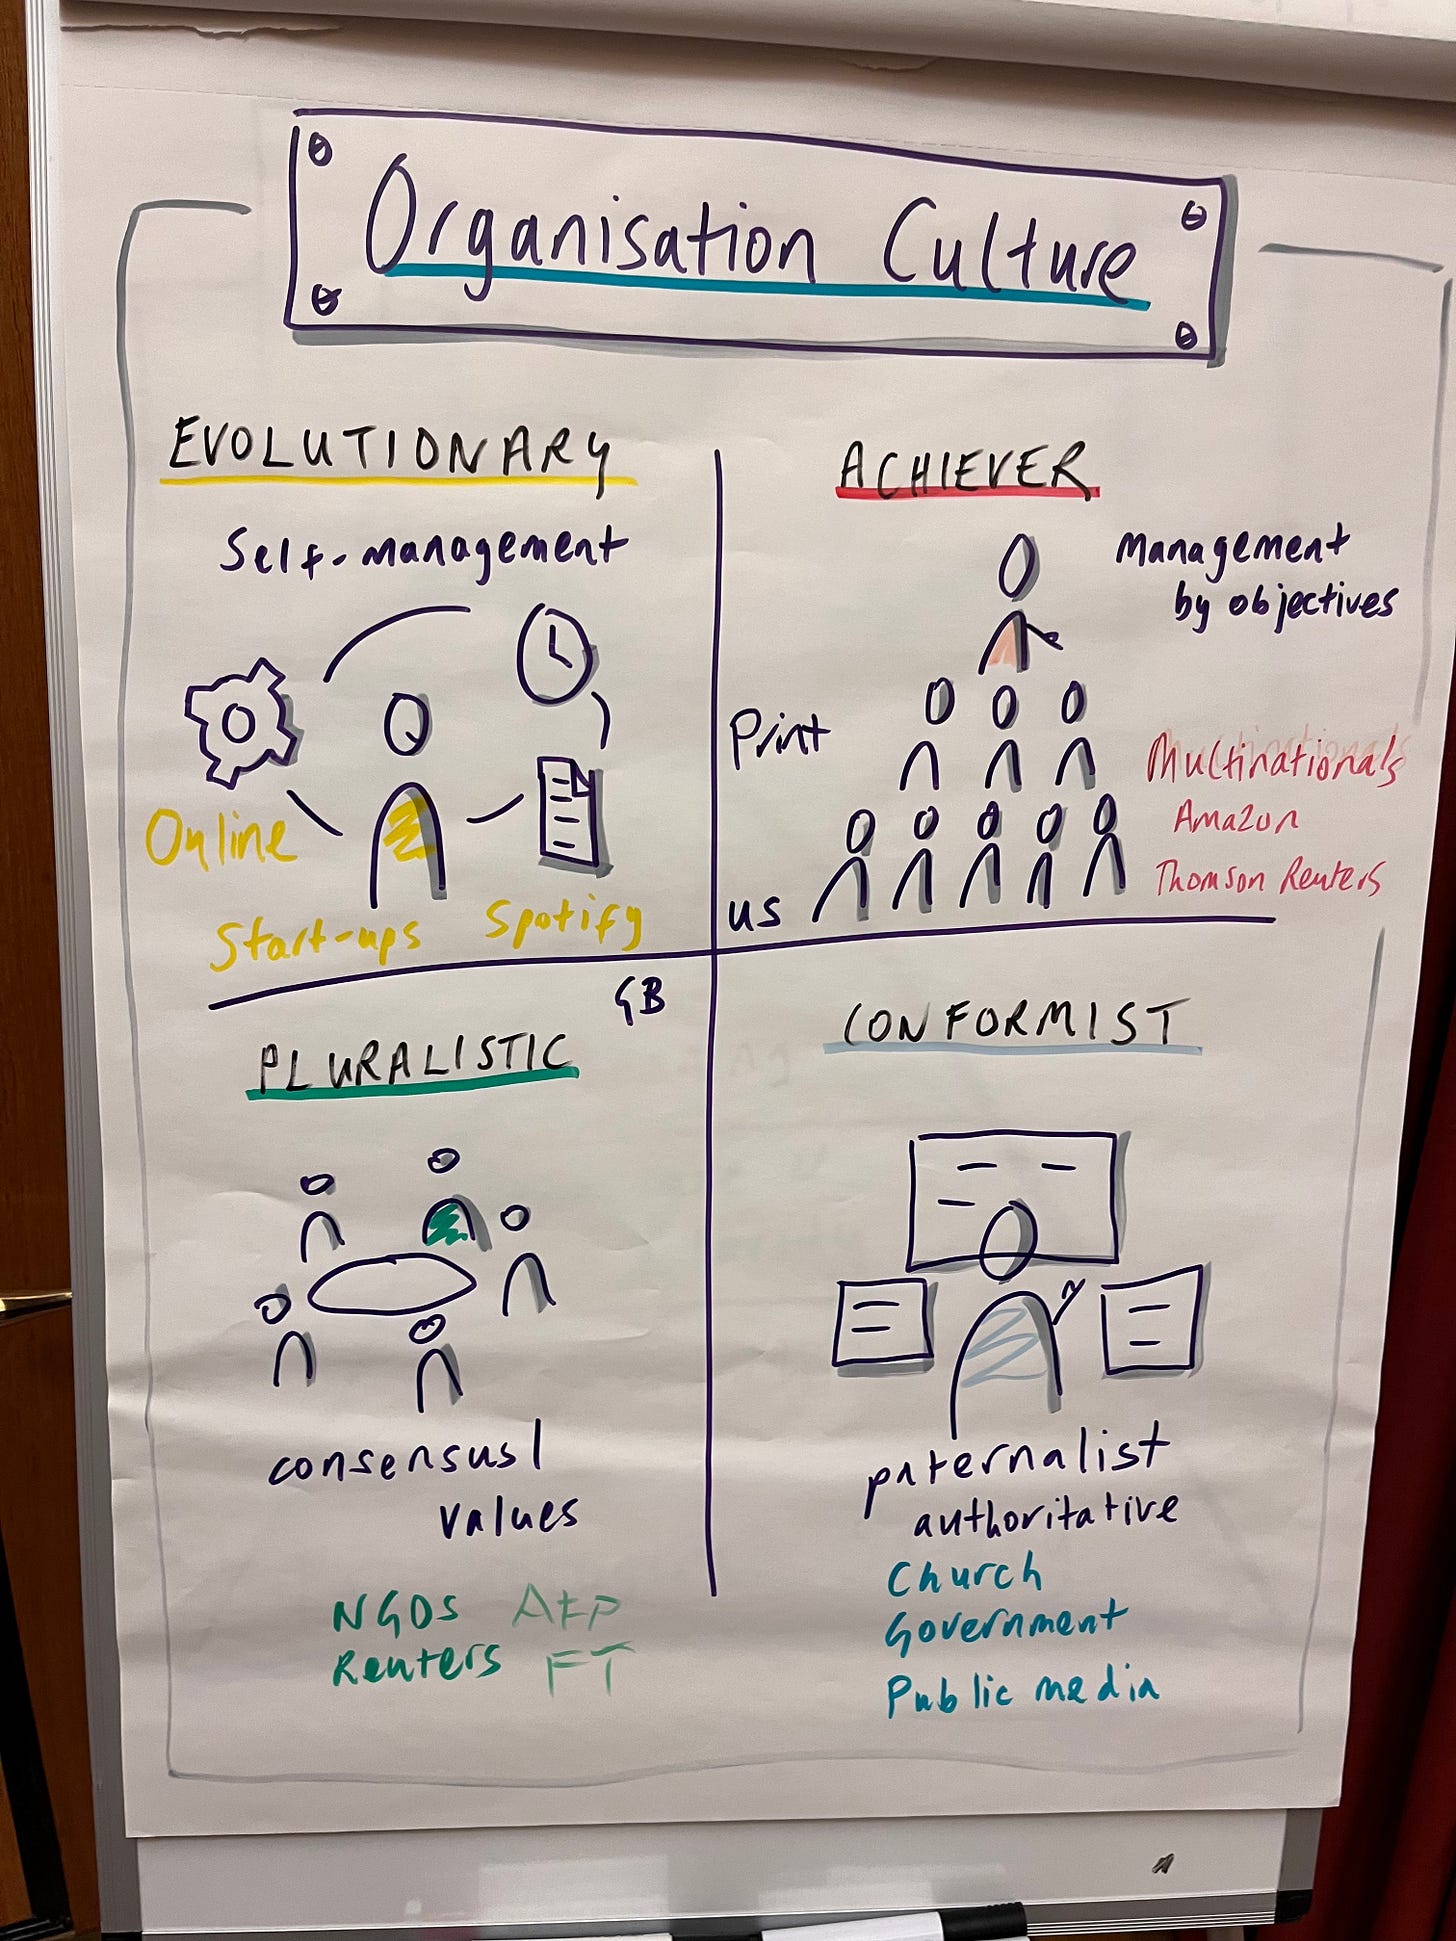 Organisation Culture
EVOLUTIONARY
Self-management
Online
Start-ups
Spotify
ACHIEVER
Management
by objectives
Print
Multinationals
Amazon
Thomson Reuters
us
GB
PLURALISTIC
consensus/
values
NGOs AFP
Reuters FT
CONFORMIST
paternalist
authoritative
Church
Government
Public media